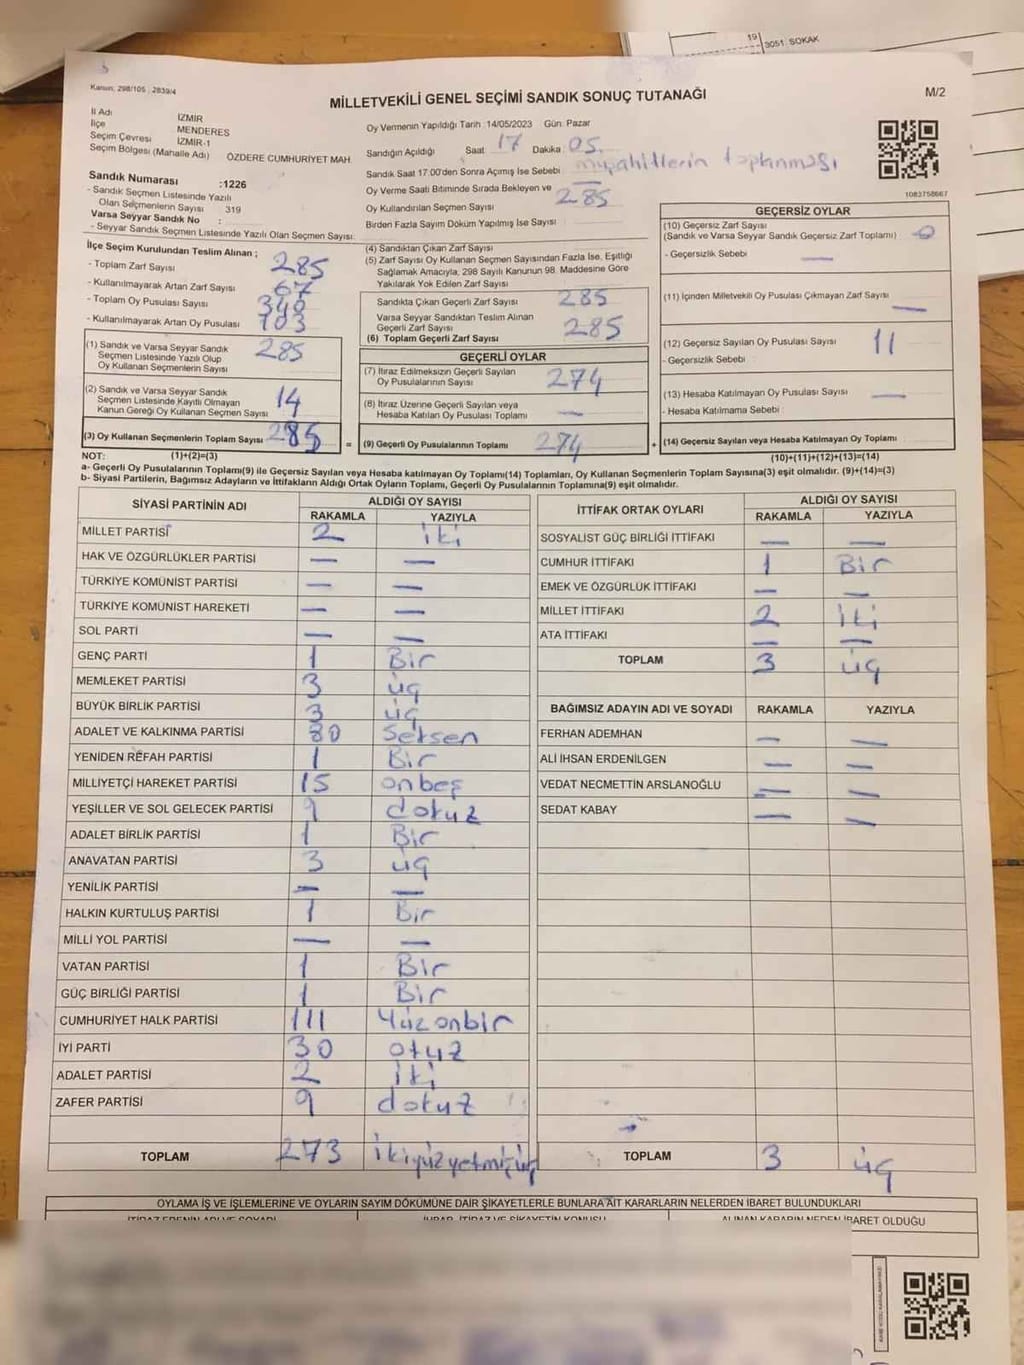 19
3051. SOKAK
Kanun; 298/105 ; 2839/4
MİLLETVEKİLİ GENEL SEÇİMİ SANDIK SONUÇ TUTANAĞI
M/2
İl Adı İZMİR
İlçe MENDERES
Seçim Çevresi İZMİR-1
Seçim Bölgesi (Mahalle Adı) ÖZDERE CUMHURİYET MAH.
Oy Vermenin Yapıldığı Tarih : 14/05/2023 Gün: Pazar
Sandığın Açıldığı Saat 17 Dakika 05.
Sandık Saat 17.00'den Sonra Açımış İse Sebebi müşahitlerin toplanması
Oy Verme Saati Bitiminde Sırada Bekleyen ve
Oy Kullandırılan Seçmen Sayısı 285
Birden Fazla Sayım Döküm Yapılmış İse Sayısı
1083758667
Sandık Numarası :1226
- Sandık Seçmen Listesinde Yazılı
Olan Seçmenlerin Sayısı 319
Varsa Seyyar Sandık No :
- Seyyar Sandık Seçmen Listesinde Yazılı Olan Seçmen Sayısı:
İlçe Seçim Kurulundan Teslim Alınan ;
- Toplam Zarf Sayısı 285
- Kullanılmayarak Artan Zarf Sayısı 67
- Toplam Oy Pusulası Sayısı 340
- Kullanılmayarak Artan Oy Pusulası 103
(1) Sandık ve Varsa Seyyar Sandık
Seçmen Listesinde Yazılı Olup
Oy Kullanan Seçmenlerin Sayısı 285
(2) Sandık ve Varsa Seyyar Sandık
Seçmen Listesinde Kayıtlı Olmayan
Kanun Gereği Oy Kullanan Seçmen Sayısı 14
(3) Oy Kullanan Seçmenlerin Toplam Sayısı 285
(1)+(2)=(3)
(4) Sandıktan Çıkan Zarf Sayısı
(5) Zarf Sayısı Oy Kullanan Seçmen Sayısından Fazla İse, Eşitliği
Sağlamak Amacıyla, 298 Sayılı Kanunun 98. Maddesine Göre
Yakılarak Yok Edilen Zarf Sayısı
Sandıkta Çıkan Geçerli Zarf Sayısı 285
Varsa Seyyar Sandıktan Teslim Alınan
Geçerli Zarf Sayısı
(6) Toplam Geçerli Zarf Sayısı 285
GEÇERLİ OYLAR
(7) İtiraz Edilmeksizin Geçerli Sayılan
Oy Pusulalarının Sayısı 274
(8) İtiraz Üzerine Geçerli Sayılan veya
Hesaba Katılan Oy Pusulası Toplamı —
= (9) Geçerli Oy Pusulalarının Toplamı 274
GEÇERSİZ OYLAR
(10) Geçersiz Zarf Sayısı
(Sandık ve Varsa Seyyar Sandık Geçersiz Zarf Toplamı) 0
- Geçersizlik Sebebi —
(11) İçinden Milletvekili Oy Pusulası Çıkmayan Zarf Sayısı —
(12) Geçersiz Sayılan Oy Pusulası Sayısı 11
- Geçersizlik Sebebi
(13) Hesaba Katılmayan Oy Pusulası Sayısı —
- Hesaba Katılmama Sebebi
+ (14) Geçersiz Sayılan veya Hesaba Katılmayan Oy Toplamı
(10)+(11)+(12)+(13)=(14)
NOT:
a- Geçerli Oy Pusulalarının Toplamı(9) ile Geçersiz Sayılan veya Hesaba katılmayan Oy Toplamı(14) Toplamları, Oy Kullanan Seçmenlerin Toplam Sayısına(3) eşit olmalıdır. (9)+(14)=(3)
b- Siyasi Partilerin, Bağımsız Adayların ve İttifakların Aldığı Ortak Oyların Toplamı, Geçerli Oy Pusulalarının Toplamına(9) eşit olmalıdır.
SİYASİ PARTİNİN ADI ALDIĞI OY SAYISI
RAKAMLA YAZIYLA
MİLLET PARTİSİ 2 iki
HAK VE ÖZGÜRLÜKLER PARTİSİ — —
TÜRKİYE KOMÜNİST PARTİSİ — —
TÜRKİYE KOMÜNİST HAREKETİ — —
SOL PARTİ — —
GENÇ PARTİ 1 Bir
MEMLEKET PARTİSİ 3 üç
BÜYÜK BİRLİK PARTİSİ 3 üç
ADALET VE KALKINMA PARTİSİ 80 Seksen
YENİDEN REFAH PARTİSİ 1 Bir
MİLLİYETÇİ HAREKET PARTİSİ 15 onbeş
YEŞİLLER VE SOL GELECEK PARTİSİ 9 dokuz
ADALET BİRLİK PARTİSİ 1 Bir
ANAVATAN PARTİSİ 3 üç
YENİLİK PARTİSİ — —
HALKIN KURTULUŞ PARTİSİ 1 Bir
MİLLİ YOL PARTİSİ — —
VATAN PARTİSİ 1 Bir
GÜÇ BİRLİĞİ PARTİSİ 1 Bir
CUMHURİYET HALK PARTİSİ 111 Yüzonbir
İYİ PARTİ 30 otuz
ADALET PARTİSİ 2 iki
ZAFER PARTİSİ 9 dokuz
TOPLAM 273 ikiyüzyetmişüç
İTTİFAK ORTAK OYLARI ALDIĞI OY SAYISI
RAKAMLA YAZIYLA
SOSYALİST GÜÇ BİRLİĞİ İTTİFAKI — —
CUMHUR İTTİFAKI 1 Bir
EMEK VE ÖZGÜRLÜK İTTİFAKI — —
MİLLET İTTİFAKI 2 iki
ATA İTTİFAKI — —
TOPLAM 3 üç
BAĞIMSIZ ADAYIN ADI VE SOYADI RAKAMLA YAZIYLA
FERHAN ADEMHAN — —
ALİ İHSAN ERDENİLGEN — —
VEDAT NECMETTİN ARSLANOĞLU — —
SEDAT KABAY — —
TOPLAM 3 üç
OYLAMA İŞ VE İŞLEMLERİNE VE OYLARIN SAYIM DÖKÜMÜNE DAİR ŞİKAYETLERLE BUNLARA AİT KARARLARIN NELERDEN İBARET BULUNDUKLARI
İTİRAZ EDENİN ADI VE SOYADI İHBAR, İTİRAZ VE ŞİKAYETİN KONUSU ALINAN KARARIN NEDEN İBARET OLDUĞU